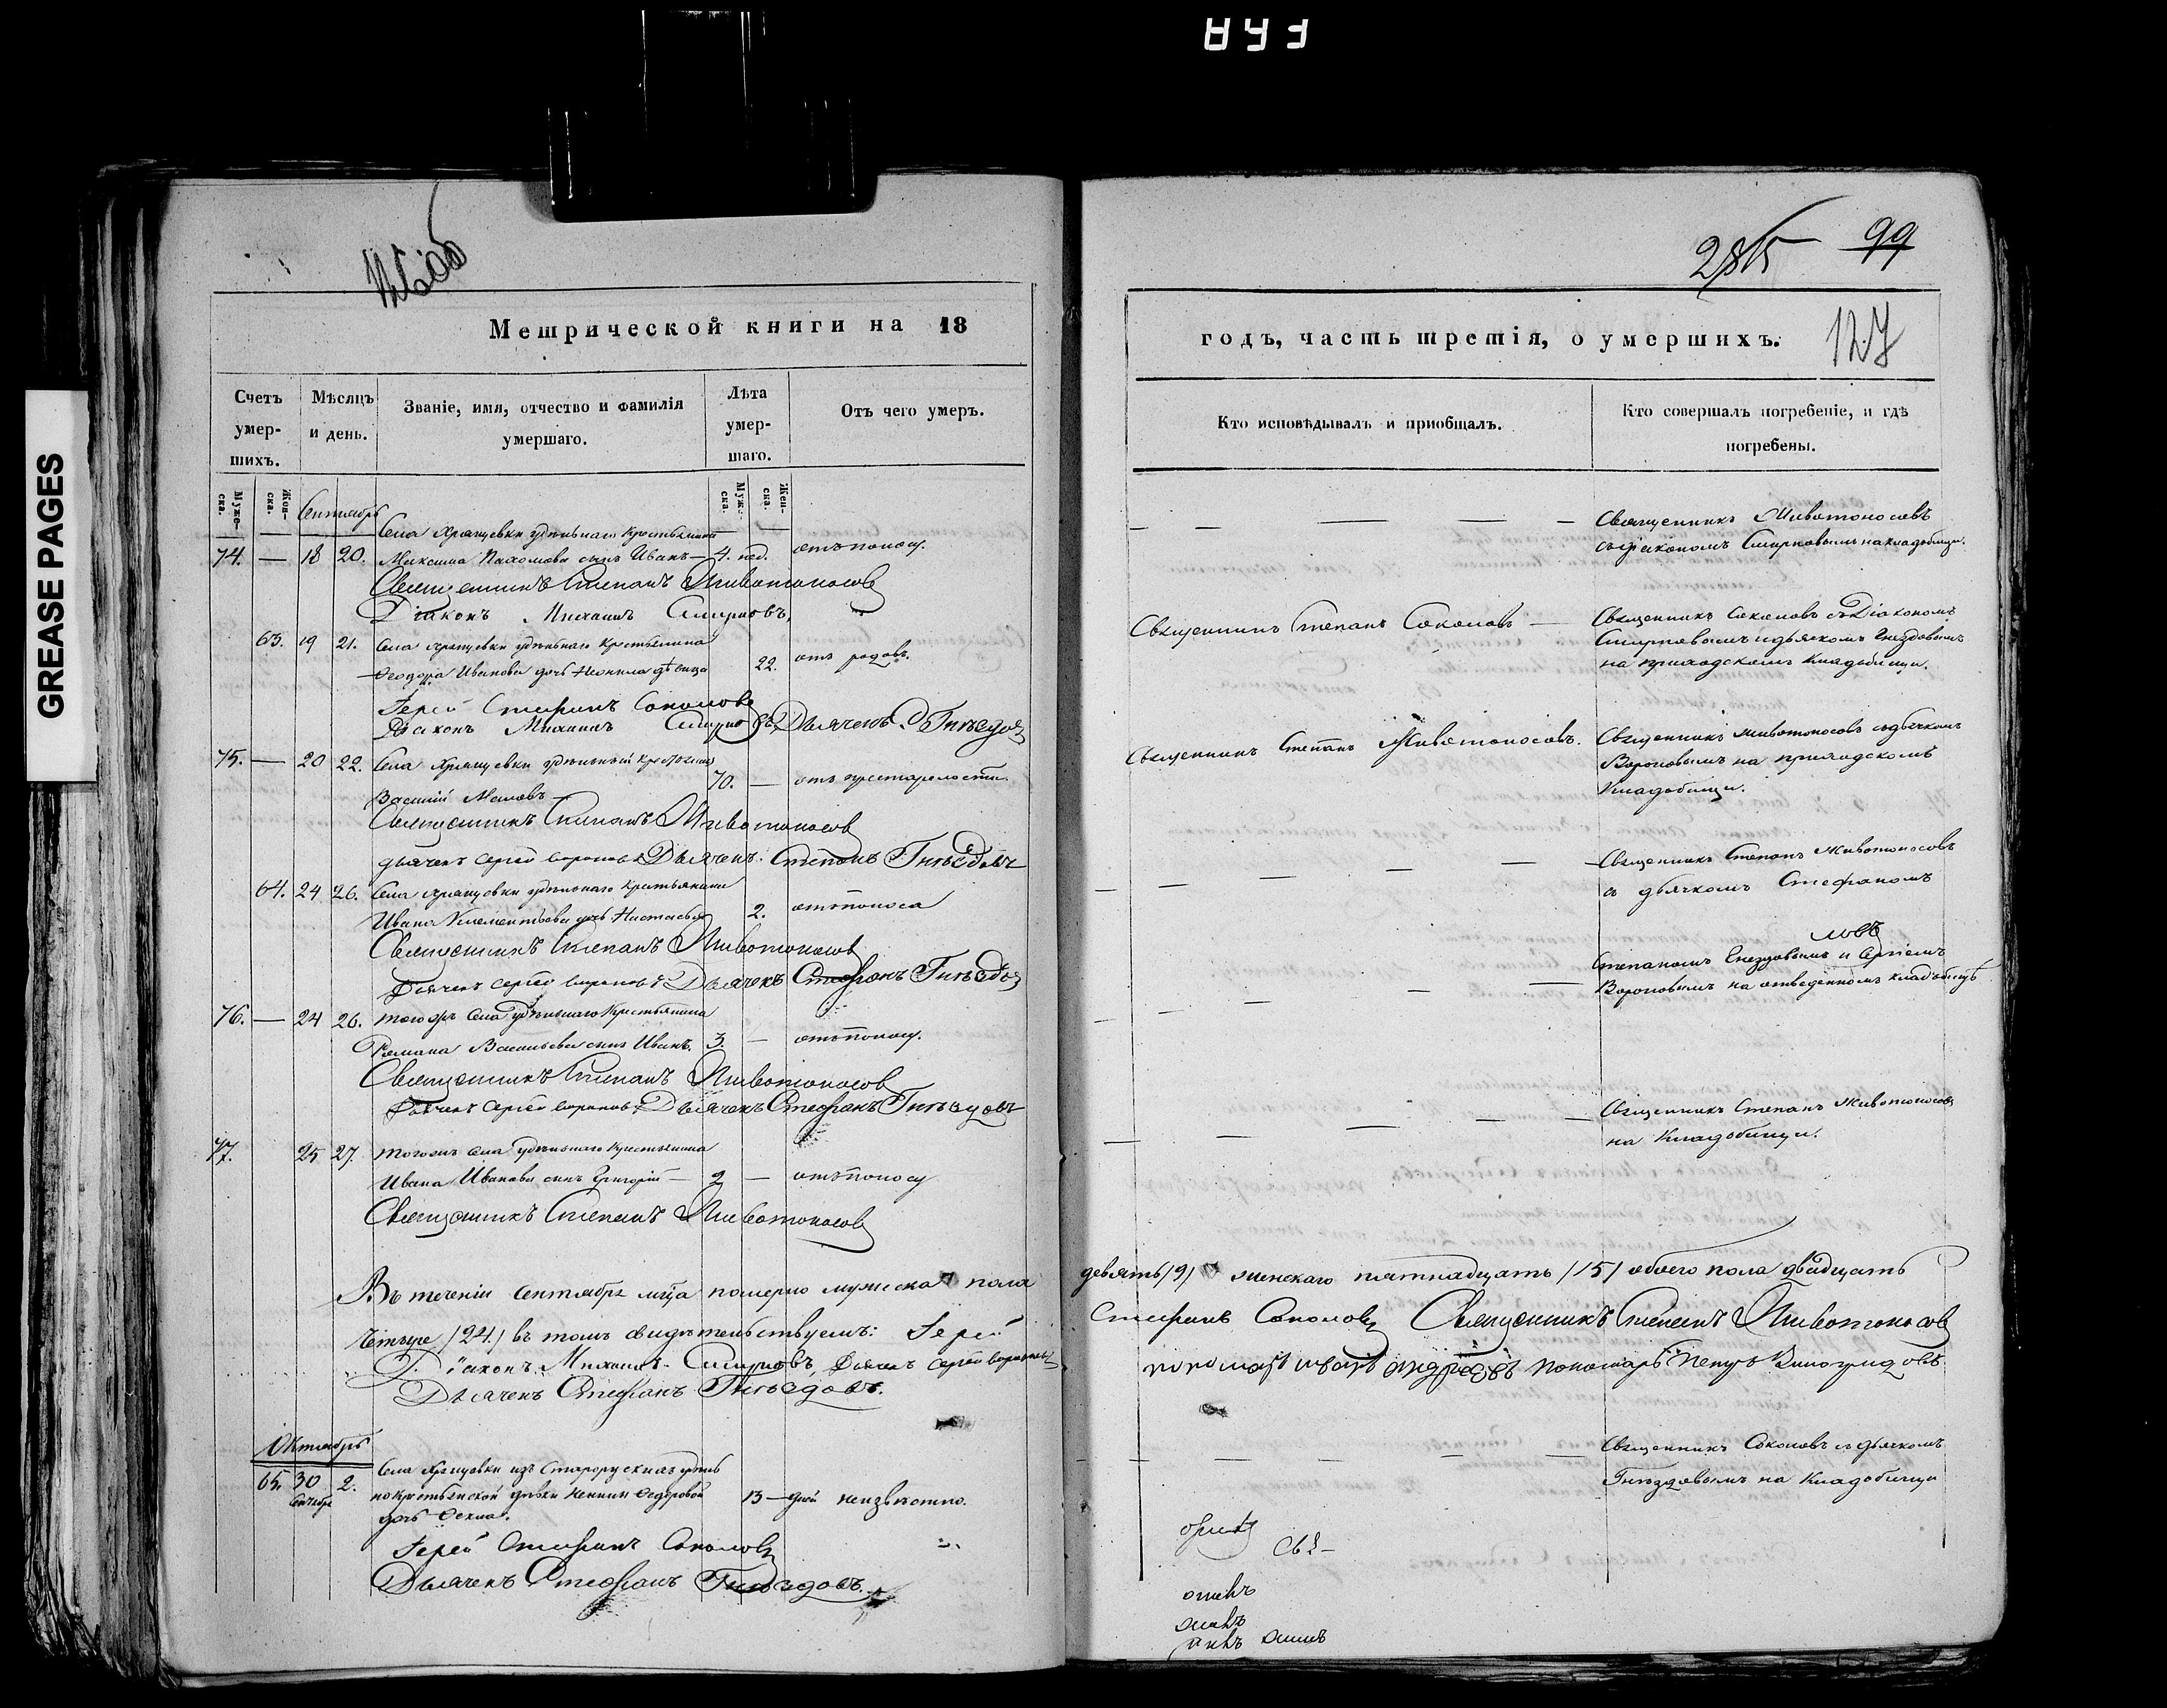 GREASE PAGES
Метрической книги на 18
Счетъ умершихъ.
Мѣсяцъ и день.
Званіе, имя, отчество и фамилія умершаго.
Лѣта умершаго.
Отъ чего умеръ.
Муже-ска.
Жен-ска.
Муже-ска.
Жен-ска.
Сентябрь
Села Хрящевки удѣльнаго крестьянина
74. — 18 20. Максима Пахомова сынъ Иванъ — 4. нед. отъ поносу.
Священникъ Степанъ Животоносов
Діаконъ Михаилъ Смирновъ,
63. 19 21. Села Хрящевки удѣльнаго крестьянина
Ѳеодора Иванова дочь Неонила дѣвица 22. отъ родовъ.
Іерей Стефанъ Соколовъ
Діаконъ Михаилъ Смирновъ, Дьячекъ С. Гнѣздов
75. — 20 22. Села Хрящевки удѣльный крестьянинъ
Василій Маловъ — 70. — отъ престарелости.
Священникъ Степанъ Животоносов
дьячекъ Сергей Вороновъ Дьячекъ Степанъ Гнѣздовъ
64. 24 26. Села Хрящовки удѣльнаго крестьянина
Ивана Климентьева дочь Настасья 2. отъ поноса
Священникъ Степанъ Животоносов
Дьячекъ Сергей Вороновъ Дьячекъ Стефанъ Гнѣздов
76. — 24 26. того жъ села удѣльнаго крестьянина
Романа Васильева сынъ Иванъ. 3. — отъ поносу.
Священникъ Степанъ Животоносов
Дьячекъ Сергей Вороновъ Дьячекъ Стефанъ Гнѣздовъ
77. 25 27. того жъ села удѣльнаго крестьянина
Ивана Иванова сынъ Григорій — 2 — отъ поносу
Священникъ Степанъ Животоносов
Въ теченіи Сентября мца померло мужеска пола
четыре /24./ въ томъ свидѣтельствуемъ: Іерей
Діаконъ Михаилъ Смирновъ, Дьячекъ Сергей Вороновъ
Дьячекъ Стефанъ Гнѣздовъ.
Октябрь
65. 30 2. Села Хрящевки изъ
Сентября крестьянской дѣвки Ѳедоровой 13 — дней неизвѣстно.
дочь
Іерей Стефанъ Соколовъ
Дьячекъ Стефанъ Гнѣздовъ.
285 99
годъ, часть третія, о умершихъ.
127
Кто исповѣдывалъ и приобщалъ.
Кто совершалъ погребеніе, и гдѣ погребены.
Священникъ Животоносовъ
съ діакономъ Смирновымъ на кладбищи.
Священникъ Степанъ Соколовъ —
Священникъ Соколовъ съ Діакономъ
Смирновымъ и дьячкомъ Гнездовымъ
на приходскомъ кладбищи.
Священникъ Степанъ Животоносовъ.
Священникъ Животоносовъ съ дьячкомъ
Вороновымъ на приходскомъ
кладбищи.
Священникъ Степанъ Животоносовъ
съ дьячкомъ Стефаномъ
Степаномъ Гнездовымъ и Сергіемъ
Вороновымъ на отведенномъ кладбищѣ
Священникъ Степанъ Животоносовъ
на кладбищи.
девять /9/ женскаго пятнадцать /15/ обоего пола двадцать
Стефанъ Соколовъ Священникъ Степанъ Животоносов
пономарь Иванъ пономарь Петръ Виноградовъ
Священникъ Соколовъ съ дьячкомъ
Гнѣздовымъ на кладбищи